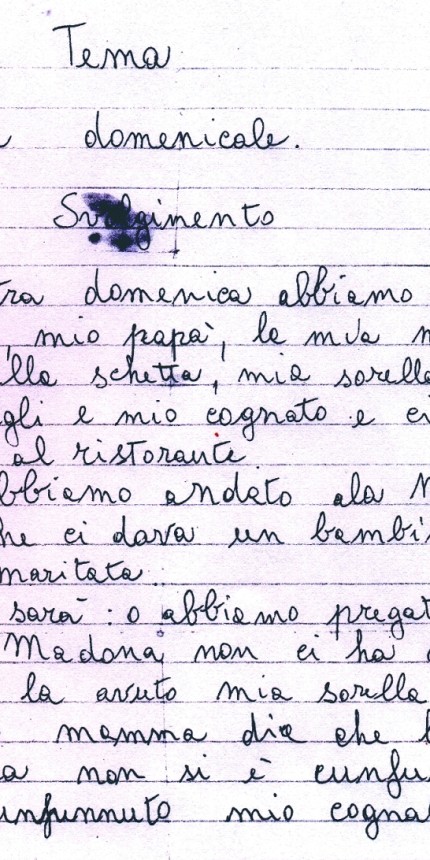 Tema
domenicale.
Svolgimento
tra domenica abbiamo
, mio papà, la mia m
lla schetta, mia sorella
gli e mio cognato e ci
al ristorante
bbiamo andato ala M
he ci dava un bambi
maritata.
sarà : o abbiamo pregat
Madona non ci ha
la avuto mia sorella
mamma dice che
a non si è cunfu
unfunnuto mio cogna